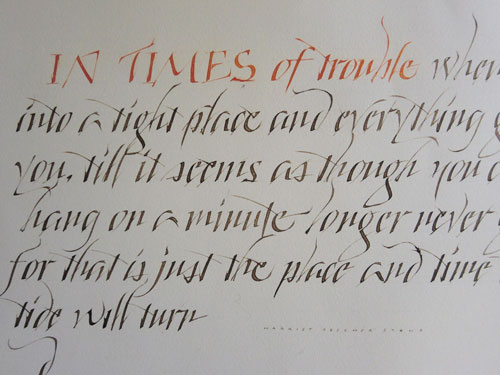 IN TIMES of trouble when
into a tight place and everything g
you, till it seems as though you c
hang on a minute longer never g
for that is just the place and time
tide will turn
HARRIET BEECHER STOWE